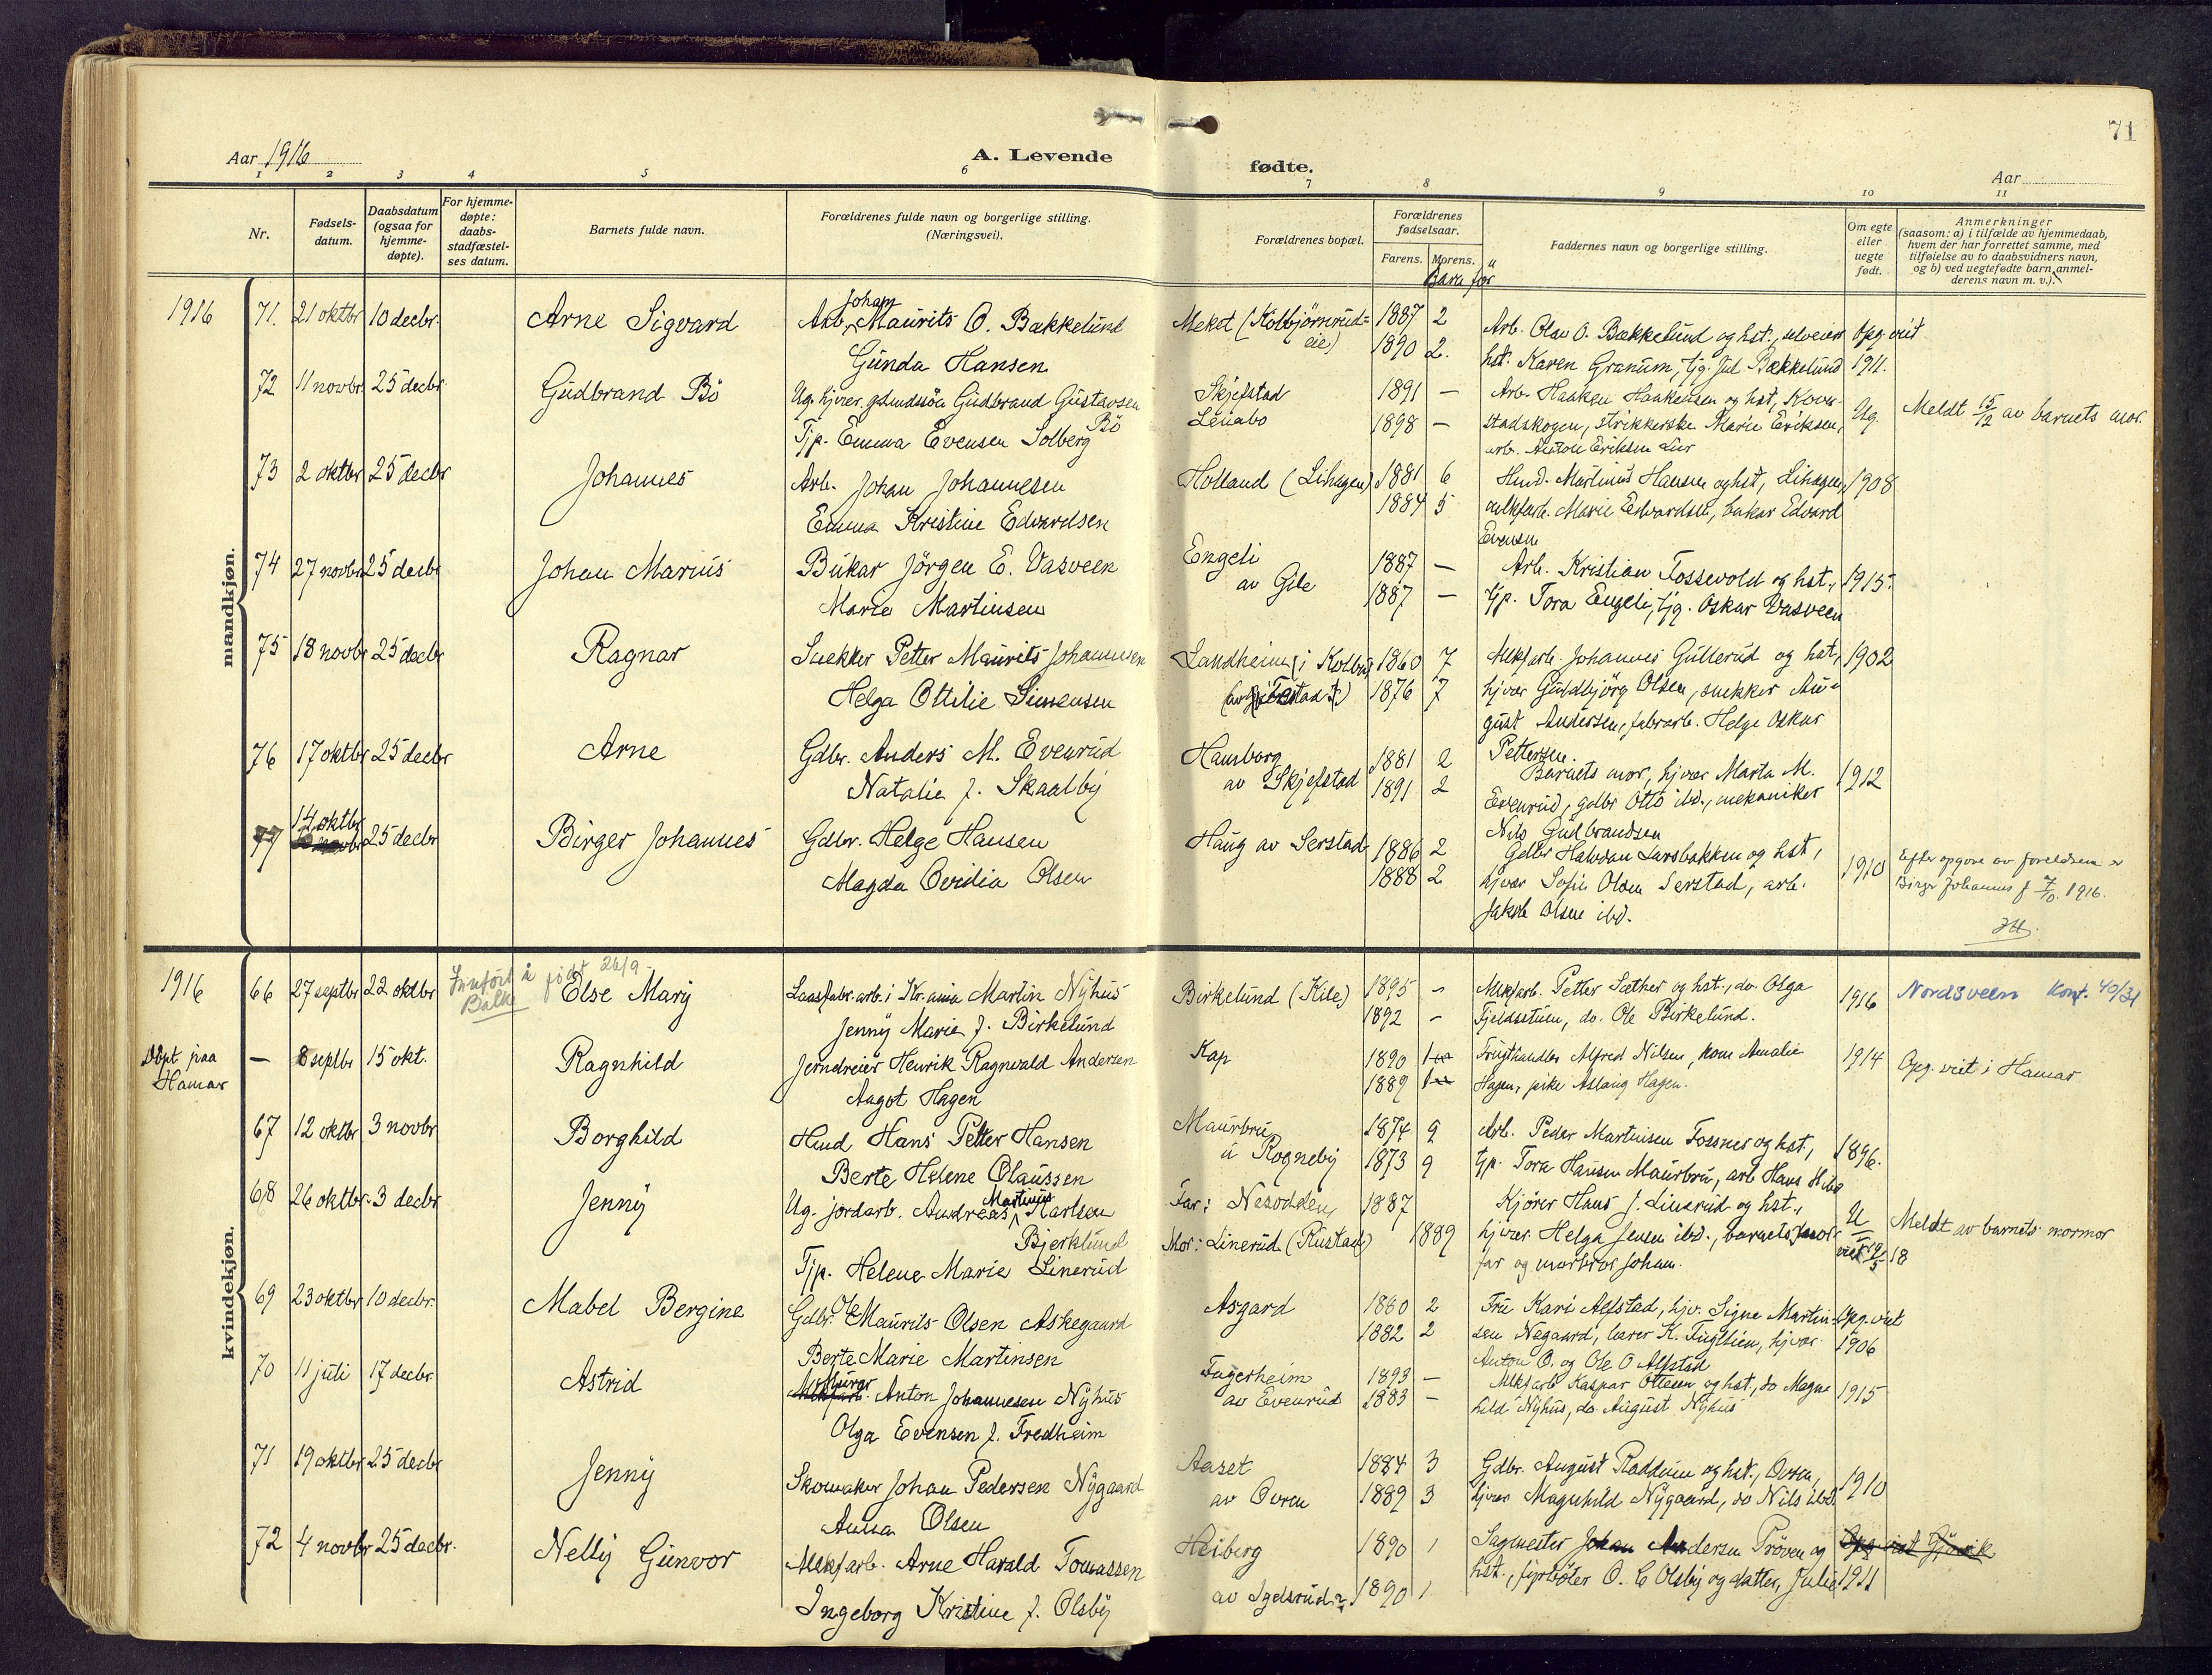 71
Aar 1916
A. Levende
fødte.
Aar
1
2
3
4
5
6
7
8
9
10
11
Nr.
Fødsels-
datum.
Daabsdatum
(ogsaa for
hjemme-
døpte).
For hjemme-
døpte:
daabs-
stadfæstel-
ses datum.
Barnets fulde navn.
Forældrenes fulde navn og borgerlige stilling.
(Næringsvei).
Forældrenes bopæl.
Forældrenes
fødselsaar.
Farens.
Morens.
Barn før
Faddernes navn og borgerlige stilling.
Om egte
eller
uegte
født.
Anmerkninger
(saasom: a) i tilfælde av hjemmedaab,
hvem der har forrettet samme, med
tilføielse av to daabsvidners navn,
og b) ved uegtefødte barn anmel-
derens navn m. v.).
mandkjøn.
1916 71. 21 oktbr 10 decbr. Arne Sigvard Arb. Johan Maurits O. Bækkelund Meket (Kolbjørnrud= 1887 2 Arb. Olav O. Bækkelund og hst., selveier Opg. viet
Gunda Hansen eie) 1890 2. hst. Karen Granum, tjg. Jul Bækkelund 1911.
72 11 novbr 25 decbr Gudbrand Bö Ug. hjver. gbrudssön Gudbrand Gustavsen Bö Skjefstad 1891 – Arb. Haaken Haakensen og hst, Kover- Ug. Meldt 15/12 av barnets mor.
Tjp. Emma Evensen Solberg Lenabo 1898 – stadskogen, strikkerske Marie Eriksen,
arb. Anton Eriksen Lier
73 2 oktbr 25 decbr Johannes Arb. Johan Johannesen Holland (Lihagen) 1881 6 Hmd. Martinus Hansen og hst, Lihagen, 1908
Emma Kristine Edvardsen 1884 5 melkfarb. Marie Edvardsen, bakar Edvard
Evensen
74 27 novbr 25 decbr Johan Marius Bukar Jörgen E. Vasveen Engeli 1887 – Arb. Kristian Fossevold og hst., 1915.
Marie Martinsen av Gile 1887 – tjp. Tora Engeli, tjg. Oskar Vasveen
75 18 novbr 25 decbr Ragnar Snekker Petter Maurits Johannesen Landheim (i Kolbu) 1860 7 Mekfarb. Johannes Gullerud og hst, 1902
Helga Ottilie Simensen 1876 7 hjvær Guldbjörg Olsen, snekker Au=
gust Andersen, fabrarb. Helge Oskar
Pettersen.
76 17 oktbr 25 decbr Arne Gdbr. Anders M. Evenrud Hamborg 1881 2 Barnets mor, hjvær Marta M. 1912
Natalie f. Skaalby av Skjefstad 1891 2 Evenrud, gdbr Otto ibd., mekaniker
Nils Gudbrandsen
77 14 oktbr 25 decbr Birger Johannes Gdbr. Helge Hansen Haug av Serstad 1886 2 Gdbr Halvdan Larsbakken og hst, 1910 Efter opgave av foreldrene er
Magda Ovidia Olsen 1888 2 hjvær Sofie Olsen Serstad, arb. Birger Johannes f 7/10. 1916.
Jakob Olsen ibd.
kvindekjøn.
Innført å født 26/9
Balke
1916 66 27 septbr 22 oktbr Else Mary Laasfabr.arb. i Kr.ania Martin Nyhus Birkelund (Kile) 1895 – Mekfarb. Petter Sæther og hst., do. Olga 1916 Nordsveen Konf. 40/31
Jenny Marie f. Birkelund 1892 – Fjeldsstuen, do. Ole Birkelund.
Döpt paa Hamar – 8 septbr 15 okt. Ragnhild Jerndreier Henrik Ragnvald Andersen Kap 1890 1 Frugthandler Alfred Nilsen, kone Amalie 1914 Opg. viet i Hamar
Angot Hagen 1889 1 Hagen, pike Aslaug Hagen.
67 12 oktbr 3 novbr Borghild Hmd Hans Petter Hansen Maurbru 1874 9 Arb. Peder Martinsen Fossnes og hst, 1896.
Berte Helene Olaussen u Rogneby 1873 9 tjp. Tora Hansen Maurbru, arb Hans H. ibd
68 26 oktbr. 3 decbr Jenny Ug. jordarb. Andreas Martinus Karlsen Far: Nesodden, 1887 Kjörer Hans J. Linerud og hst., U
Bjerklund Mor: Linerud (Rustad) 1889 hjvær Helga Jensen ibd., barnets mor- viet 19/5 18 Meldt av barnets mormor
Tjp. Helene Marie Linerud far og morbror Johan.
69 23 oktbr 10 decbr. Mabel Bergine Gdbr. Ole Maurits Olsen Askegaard Asgard 1880 2 Fru Kari Alfstad, hjv. Signe Martin= Opg. viet
Berte Marie Martinsen 1882 2 sen Nøgaard, lærer K. Fuglien, hjvær 1906
Anton O. og Ole O Alfstad
70 11 juli 17 decbr. Astrid Murer Anton Johannesen Nyhus Fagerheim 1893 – Mekfarb Kaspar Ottesen og hst., do Magn= 1915
Olga Evensen f. Fredheim av Evenrud 1883 – hild Nyhus, do August Nyhus
71 19 oktbr 25 decbr Jenny Skomaker Johan Pedersen Nygaard Aaset 1884 3 Gdbr. August Raddum og hst., Overn, 1910
Anna Olsen av Overn 1889 3 hjvær Magnhild Nygaard, do Nils ibd.
72 4 novbr 25 decbr. Nelly Gunvor Mekfarb. Arne Harald Tomassen Heiberg 1890 1 Sagmester Johan Andersen Pröven og Opg. viet Gjövik
Ingeborg Kristine f. Olsby av Igelsrud 1890 1 hst., fyrböter O. C Olsby og datter, Julie 1911